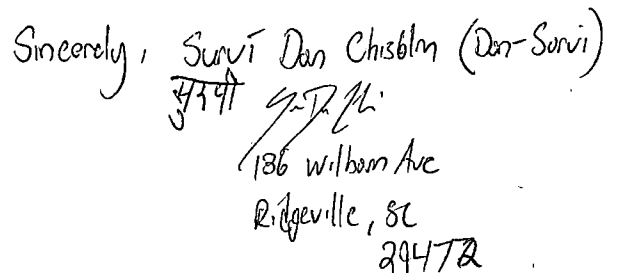 Sincerely, Survi Dan Chisolm (Dan-Survi)
186 Wilborn Ave
Ridgeville, SC
29472